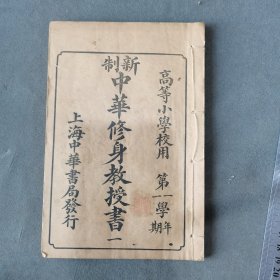 高等小學校用　第一學年第一期
新制
中華修身教授書一
上海中華書局發行